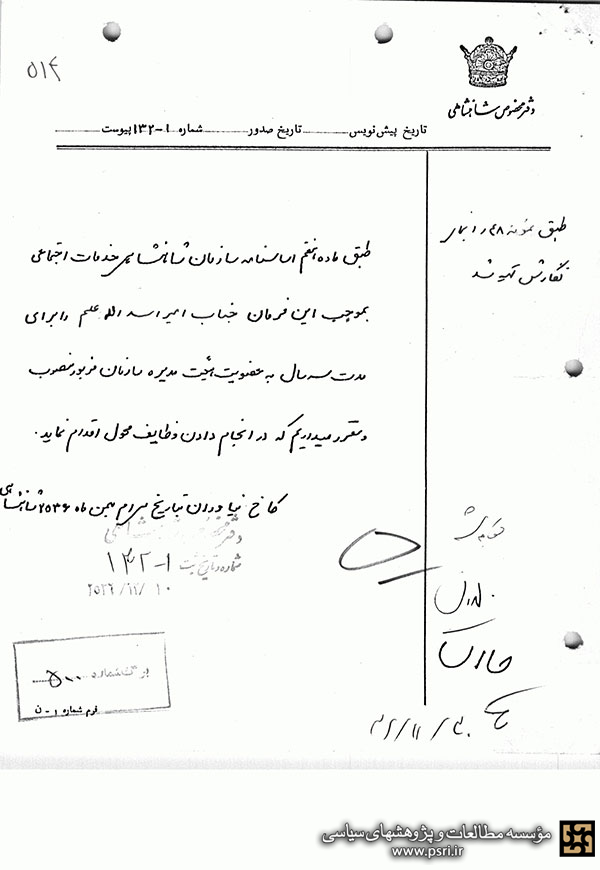 ۵۱۴
دفتر مخصوص شاهنشاهی
تاریخ پیش‌نویس تاریخ صدور شماره ۱-۱۳۲ پیوست
طبق نمونه ۴۸ راهنمای
نگارش تهیه شد
طبق ماده هفتم اساسنامه سازمان شاهنشاهی خدمات اجتماعی
بموجب این فرمان جناب امیر اسدالله علم را برای
مدت سه سال به عضویت هیئت مدیره سازمان مزبور منصوب
و مقرر میداریم که در انجام دادن وظایف محول اقدام نماید.
کاخ نیاوران بتاریخ سی‌ام بهمن ماه ۲۵۳۶ شاهنشاهی
دفتر مخصوص شاهنشاهی
شماره و تاریخ ثبت ۱-۱۳۲
۱۰/۱۲/۲۵۳۶
برگ شماره ۵۰۰
فرم شماره ۱-ن
۳۶/۱۱/۳۰
مؤسسه مطالعات و پژوهشهای سیاسی
www.psri.ir